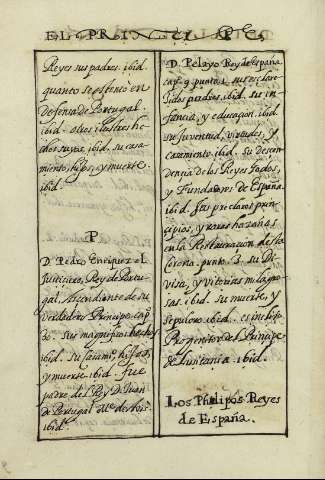 EL PRINCIPE
Reyes sus padres. ibid.
quanto se estenso en
defensa de Portugal.
ibid. otros ilustres he
chos suyos. ibid. su casa
miento, hijos, y muerte.
ibid.
P
D. Pedro Enriquez el
Justiciero, Rey de Portu
gal, Ascendiente de su
verdadero Principe. cap.
ibid. sus magnificos hechos
ibid. su casami. hijos,
y muerte. ibid. fue
padre del Rey D. Juan
de Portugal
ibid.
D. Pelayo Rey de España
cap. 9. punto 1. sus esclare
cidos padres. ibid. su in
fancia, y educacion. ibid.
su juventud, virtudes, y
casamiento. ibid. su descen
dencia de los Reyes Godos,
y Fundadores de España.
ibid. sus preclaros prin
cipios, y raras hazañas
en la Restauracion desta
Corona. punto 2. su De
visa, y vitorias milagro
sas. ibid. su muerte, y
sepulcro. ibid. es inclito
Progenitor del Principe
de Lusitania. ibid.
Los Philipos Reyes
de España.